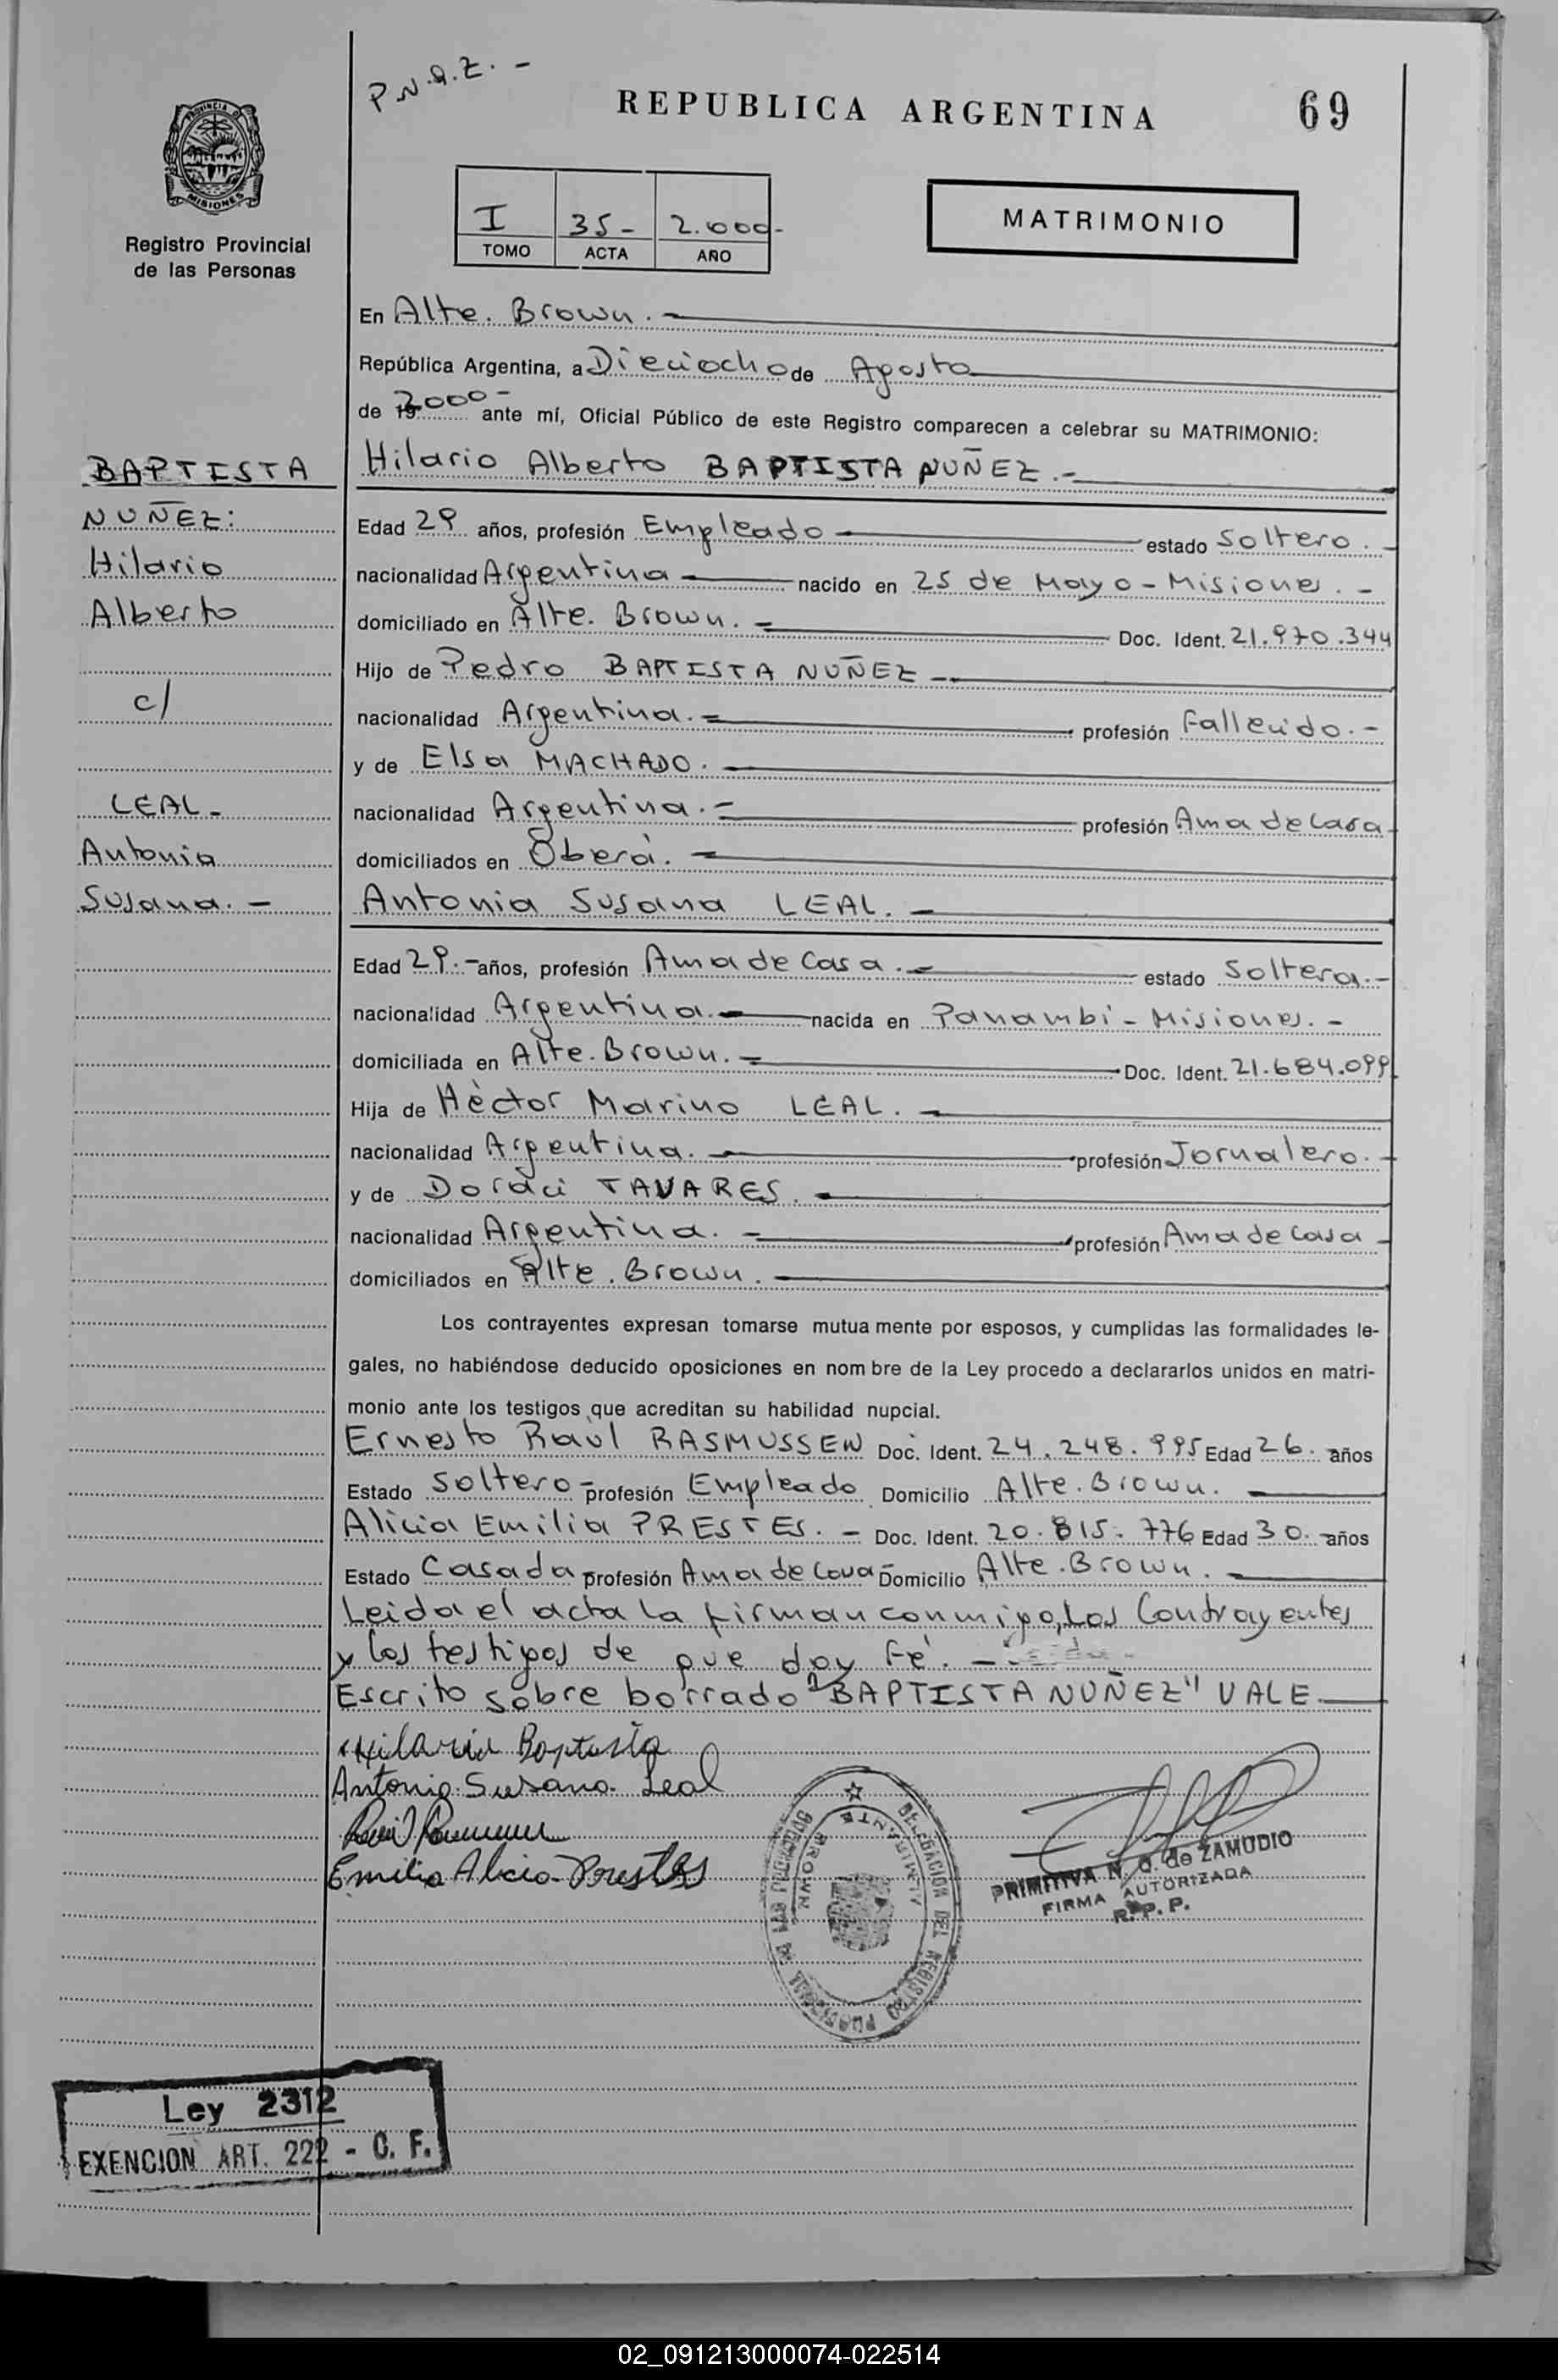 P.N.Q.Z. -
REPUBLICA ARGENTINA
69
PROVINCIA D
MISIONES
Registro Provincial
de las Personas
I 35- 2.000-
TOMO ACTA AÑO
MATRIMONIO
En Alte. Brown.-
República Argentina, a Dieciocho de Agosto
de 19 2000- ante mí, Oficial Público de este Registro comparecen a celebrar su MATRIMONIO:
BAPTISTA
NUÑEZ:
Hilario
Alberto
c/
LEAL-
Antonia
Susana.-
Hilario Alberto BAPTISTA NUÑEZ.-
Edad 29 años, profesión Empleado estado Soltero.-
nacionalidad Argentina nacido en 25 de Mayo - Misiones.-
domiciliado en Alte. Brown.- Doc. Ident. 21.970.344
Hijo de Pedro BAPTISTA NUÑEZ-.
nacionalidad Argentina.- profesión Fallecido.-
y de Elsa MACHADO.
nacionalidad Argentina.- profesión Ama de Casa
domiciliados en Oberá.
Antonia Susana LEAL.-
Edad 29.- años, profesión Ama de Casa.- estado Soltera.-
nacionalidad Argentina.- nacida en Panambí - Misiones.-
domiciliada en Alte. Brown.- Doc. Ident. 21.684.099
Hija de Hèctor Marino LEAL.
nacionalidad Argentina. profesión Jornalero.-
y de Doraci TAVARES.
nacionalidad Argentina.- profesión Ama de Casa-
domiciliados en Alte. Brown.
Los contrayentes expresan tomarse mutua mente por esposos, y cumplidas las formalidades le-
gales, no habiéndose deducido oposiciones en nom bre de la Ley procedo a declararlos unidos en matri-
monio ante los testigos que acreditan su habilidad nupcial.
Ernesto Raùl RASMUSSEN Doc. Ident. 24.248.995 Edad 26. años
Estado Soltero- profesión Empleado Domicilio Alte. Brown.
Alicia Emilia PRESTES.- Doc. Ident. 20.815.776 Edad 30. años
Estado Casada profesión Ama de Casa- Domicilio Alte. Brown.
Leida el acta la firman conmigo, Los Contrayentes
y los testigos de que doy Fé.-
Escrito sobre borrado "BAPTISTA NUÑEZ" VALE
Hilario Baptista
Antonia Susana Leal
Emilia Alicia Prestes
DELEGACION DEL REGISTRO PROVINCIAL DE LAS PERSONAS
ALMIRANTE BROWN
PRIMITIVA N. Q. de ZAMUDIO
FIRMA AUTORIZADA
R. P. P.
Ley 2312
EXENCION ART. 222 - C. F.
02_091213000074-022514